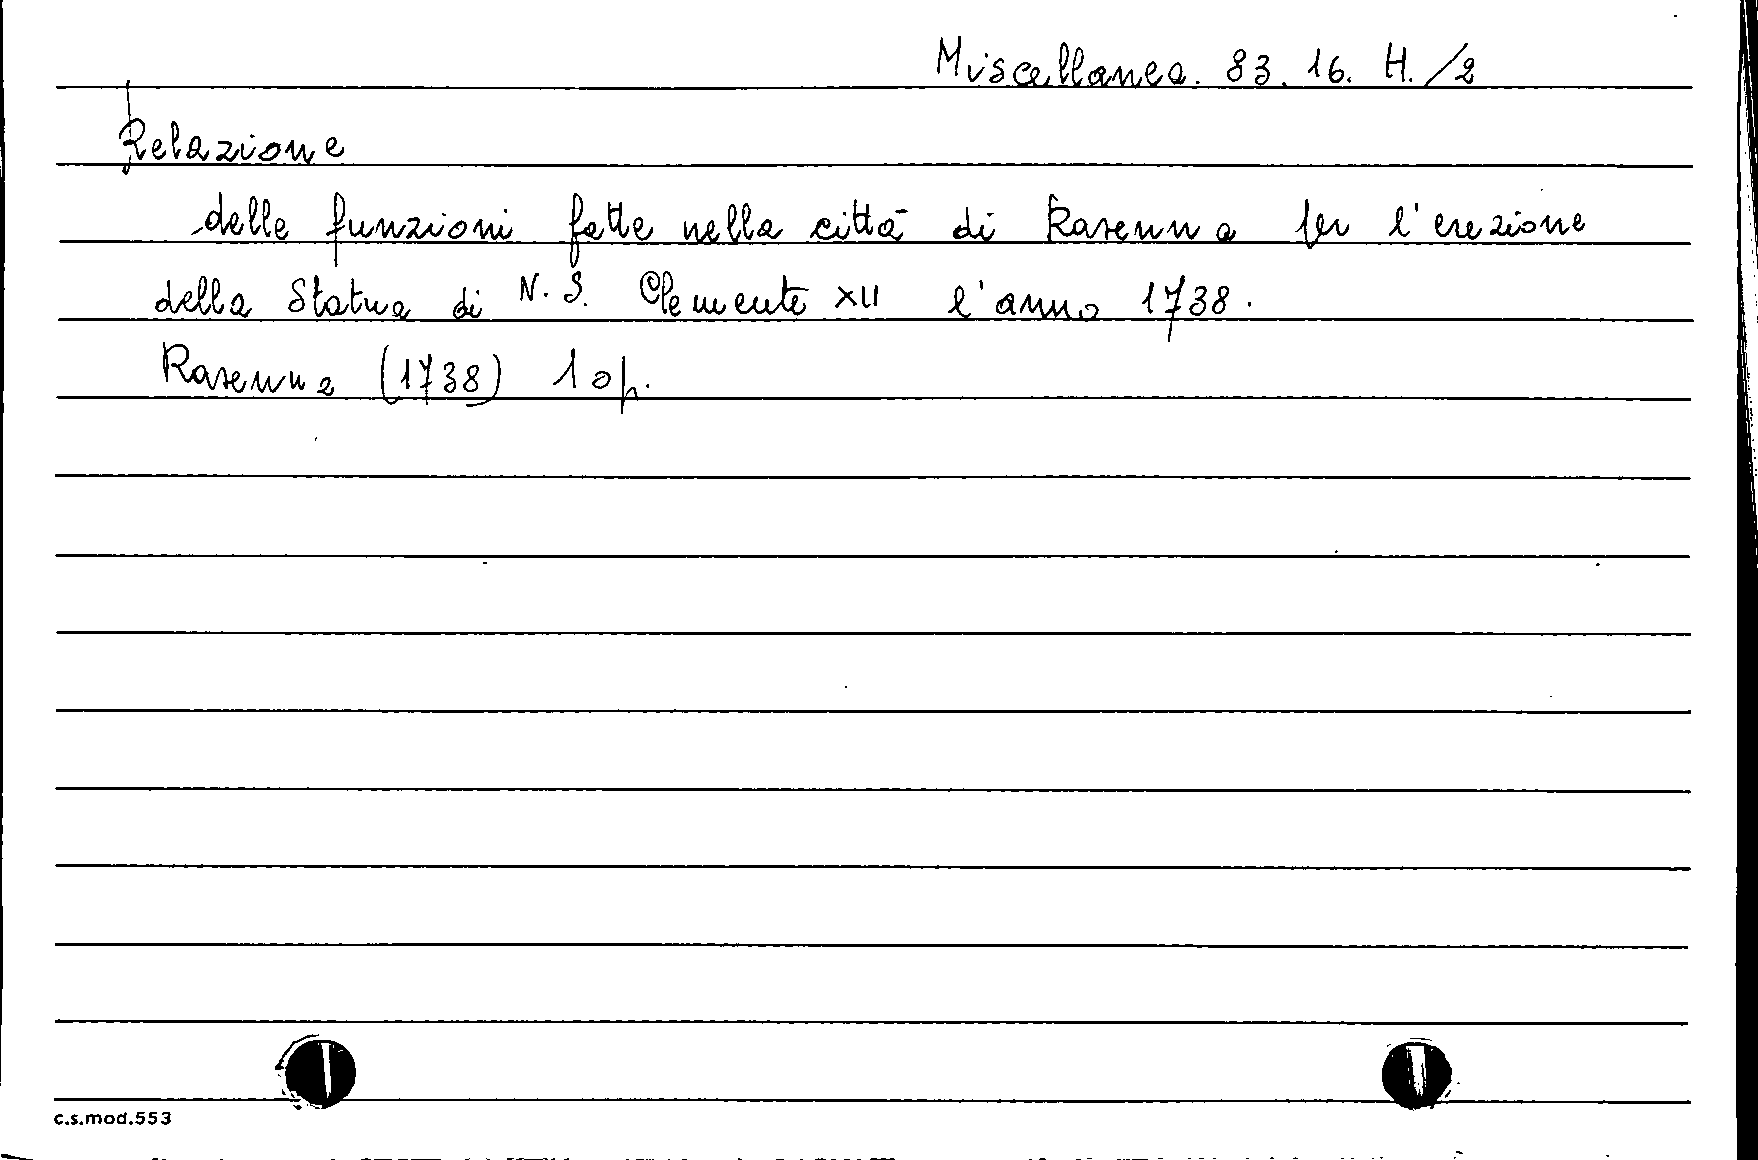 Miscellanea. 83. 16. H./2
Relazione
delle funzioni fatte nella città di Ravenna per l'erezione
della Statua di N. S. Clemente XII l'anno 1738.
Ravenna (1738) 1 op.
c.s.mod.553